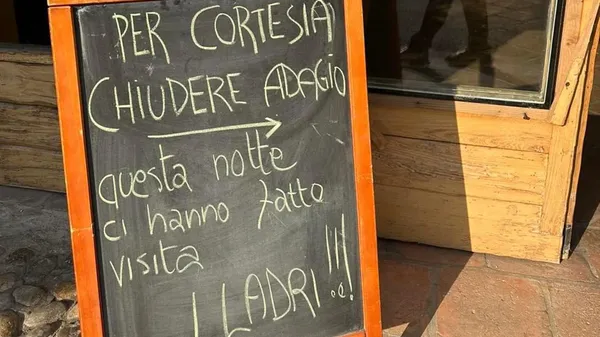 PER CORTESIA
CHIUDERE ADAGIO
questa notte
ci hanno fatto
visita
I LADRI!!!